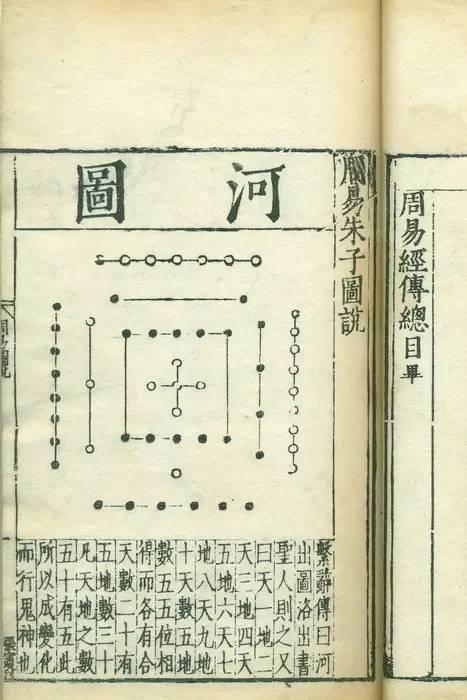 周易經傳總目畢
周易朱子圖說
河圖
繫辭傳曰河
出圖洛出書
聖人則之又
曰天一地二
天三地四天
五地六天七
地八天九地
十天數五地
數五五位相
得而各有合
天數二十有
五地數三十
凡天地之數
五十有五此
所以成變化
而行鬼神也